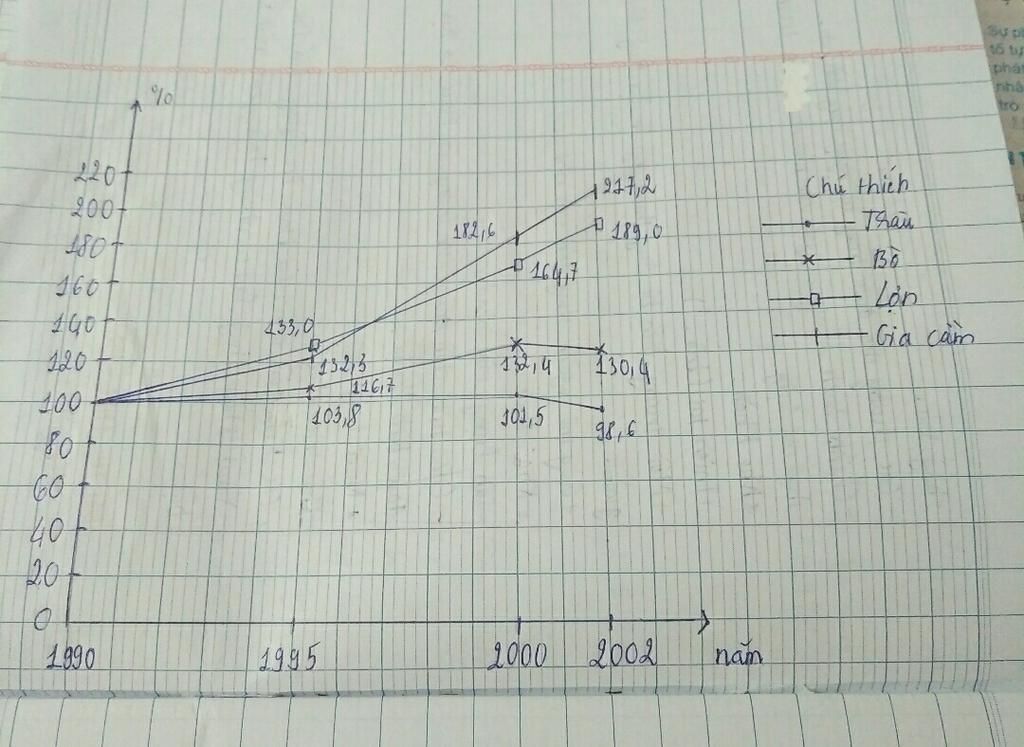 %
220
200
180
160
140
120
100
80
60
40
20
0
1990
1995
2000
2002
năm
133,0
132,3
116,7
103,8
182,6
164,7
132,4
101,5
217,2
189,0
130,4
98,6
Chú thích
Trâu
Bò
Lợn
Gia cầm
Sự ph
tố tự
phát
nhâ
trò